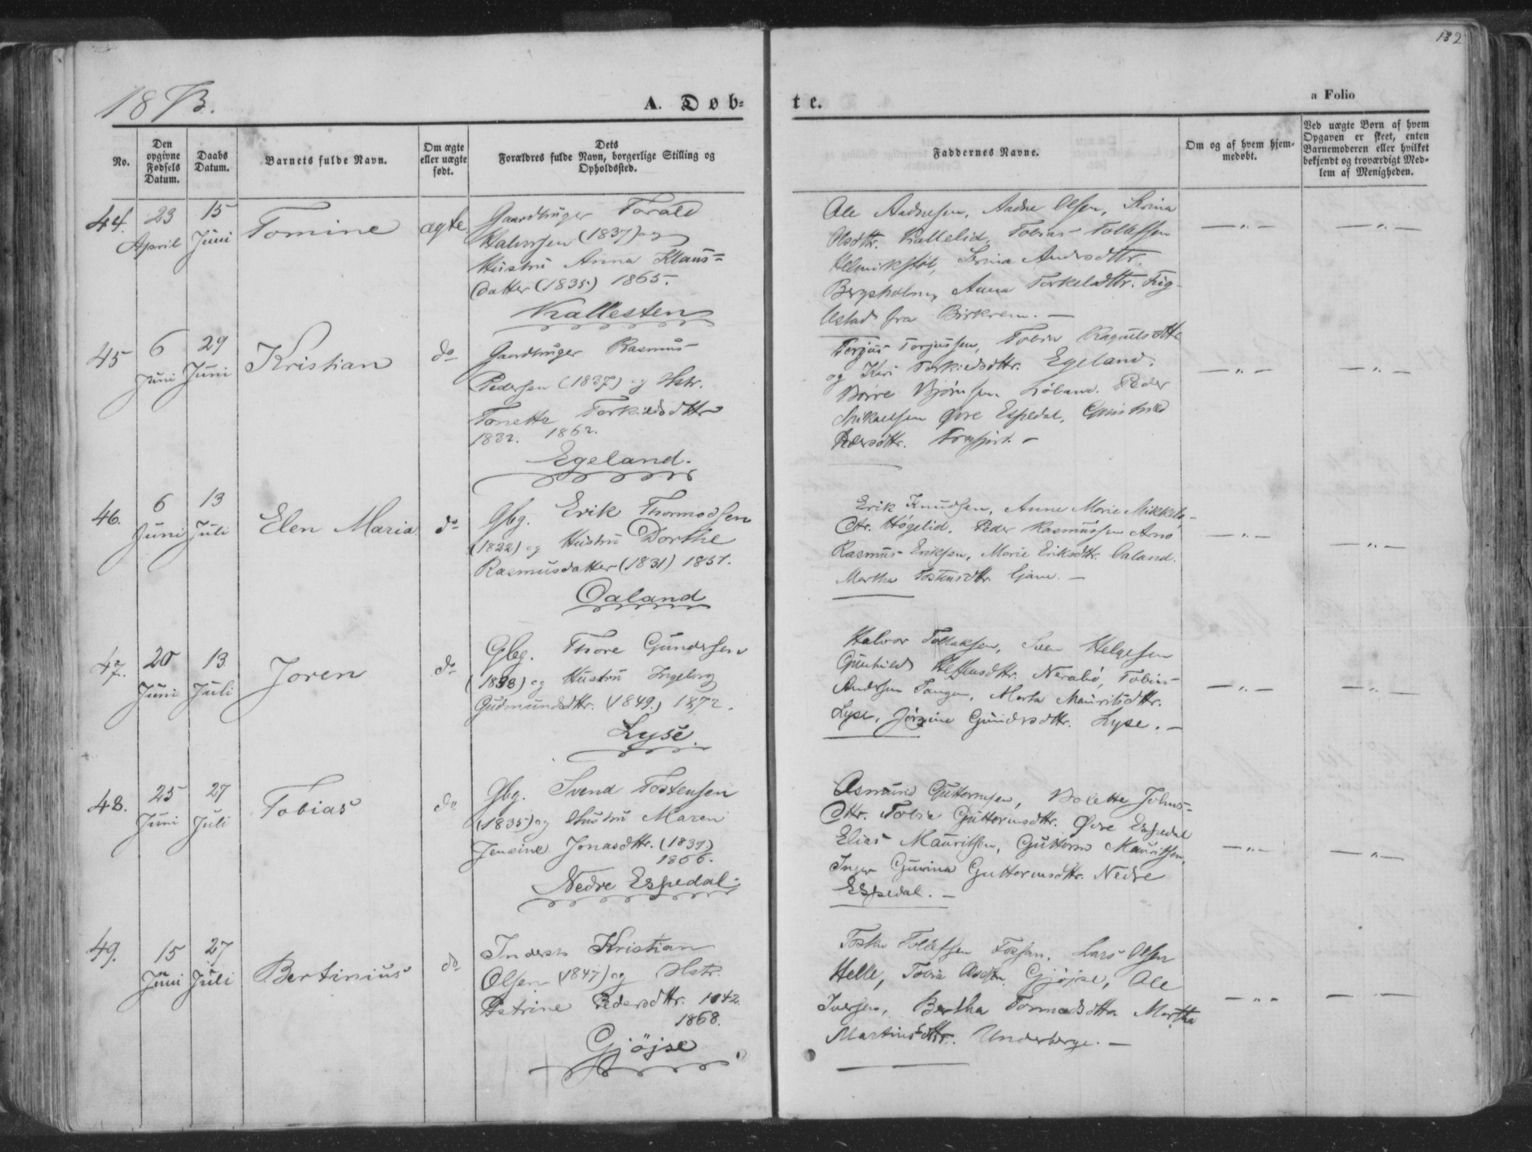 132
1873.
A. Døbte.
a Folio
No.
Den opgivne Fødsels Datum.
Daabs Datum.
Barnets fulde Navn.
Om ægte eller uægte født.
Dets Forældres fulde Navn, borgerlige Stilling og Opholdssted.
Faddernes Navne.
Om og af hvem hjemmedøbt.
Ved uægte Børn af hvem Opgaven er skeet, enten Barnemoderen eller hvilket bekjendt og troværdigt Medlem af Menigheden.
44.
23 April
15 Juni
Tomine
ægte
Gaardbruger Torald
Halvorsen (1837) og
Hustru Anna Klaus-
datter (1835) 1865.
Kallesten
Ole Aadnesen, Aadne Olsen, Serina
Olsdttr. Kallelid, Tobias Tollefsen
Serina Andersdttr.
Bergsholm, Anna Torkelsdttr.
fra Birkrem. —
— „ —
— „ —
45
6 Juni
29 Juni
Kristian
do
Gaardbruger Rasmus
Pedersen (1837) og Hstr.
Tonette Torkildsdttr
1832. 1862.
Egeland.
Torjus Torjussen,
og Egeland.
Børre Bjørnsen Peder
Mikaelsen Øvre Espedal,
Pedersdttr.
— „ —
— „ —
46.
6 Juni
13 Juli
Elen Maria
do
Gbg. Erik Thormodsen
(1822) og Hustru Dorthe
Rasmusdatter (1831) 1851.
Oaland
Erik Knudsen, Anne Marie Mikkels-
dtr. Høgelid, Peder Rasmussen
Rasmus Eriksen, Marie Eriksdttr. Oaland.
Martha —
— „ —
— „ —
47.
20 Juni
13 Juli
Joren
do
Gbg. Thore Gundersen
(1838) og Hustru Ingeborg
Gudmundsdttr. (1849.) 1872.
Lyse.
Halvor Tollaksen, Sven Helgesen
Gunhild Nerabø, Tobias
Andersen Marta Mauritsdttr.
Lyse, Jørgine Gundersdttr. Lyse. —
— „ —
— „ —
48.
25 Juni
27 Juli
Tobias
do
Gbg. Svend Tostensen
(1835) og Hustru Maren
Jensine Jonasdttr. (1837)
1866.
Nedre Espedal.
Asmund Guttormsen, Bolette Johns-
dttr. Guttormsdttr. Øvre Espedal
Elias Mauritsen, Guttorm Mauritsen,
Inger Gurina Guttormsdttr. Nedre
Espedal. —
— „ —
— „ —
49.
15 Juni
27 Juli
Bertinius
do
Inderst Kristian
Olsen (1847) og Hstr.
Petrine Pedersdttr. 1842.
1868.
Gjøjse
Tollefsen Fossan, Lars Olsen
Helle, Gjøjse, Ole
Iversen, Bertha Tormodsdttr Martha
Martinsdttr. Underberge. —
— „ —
— „ —